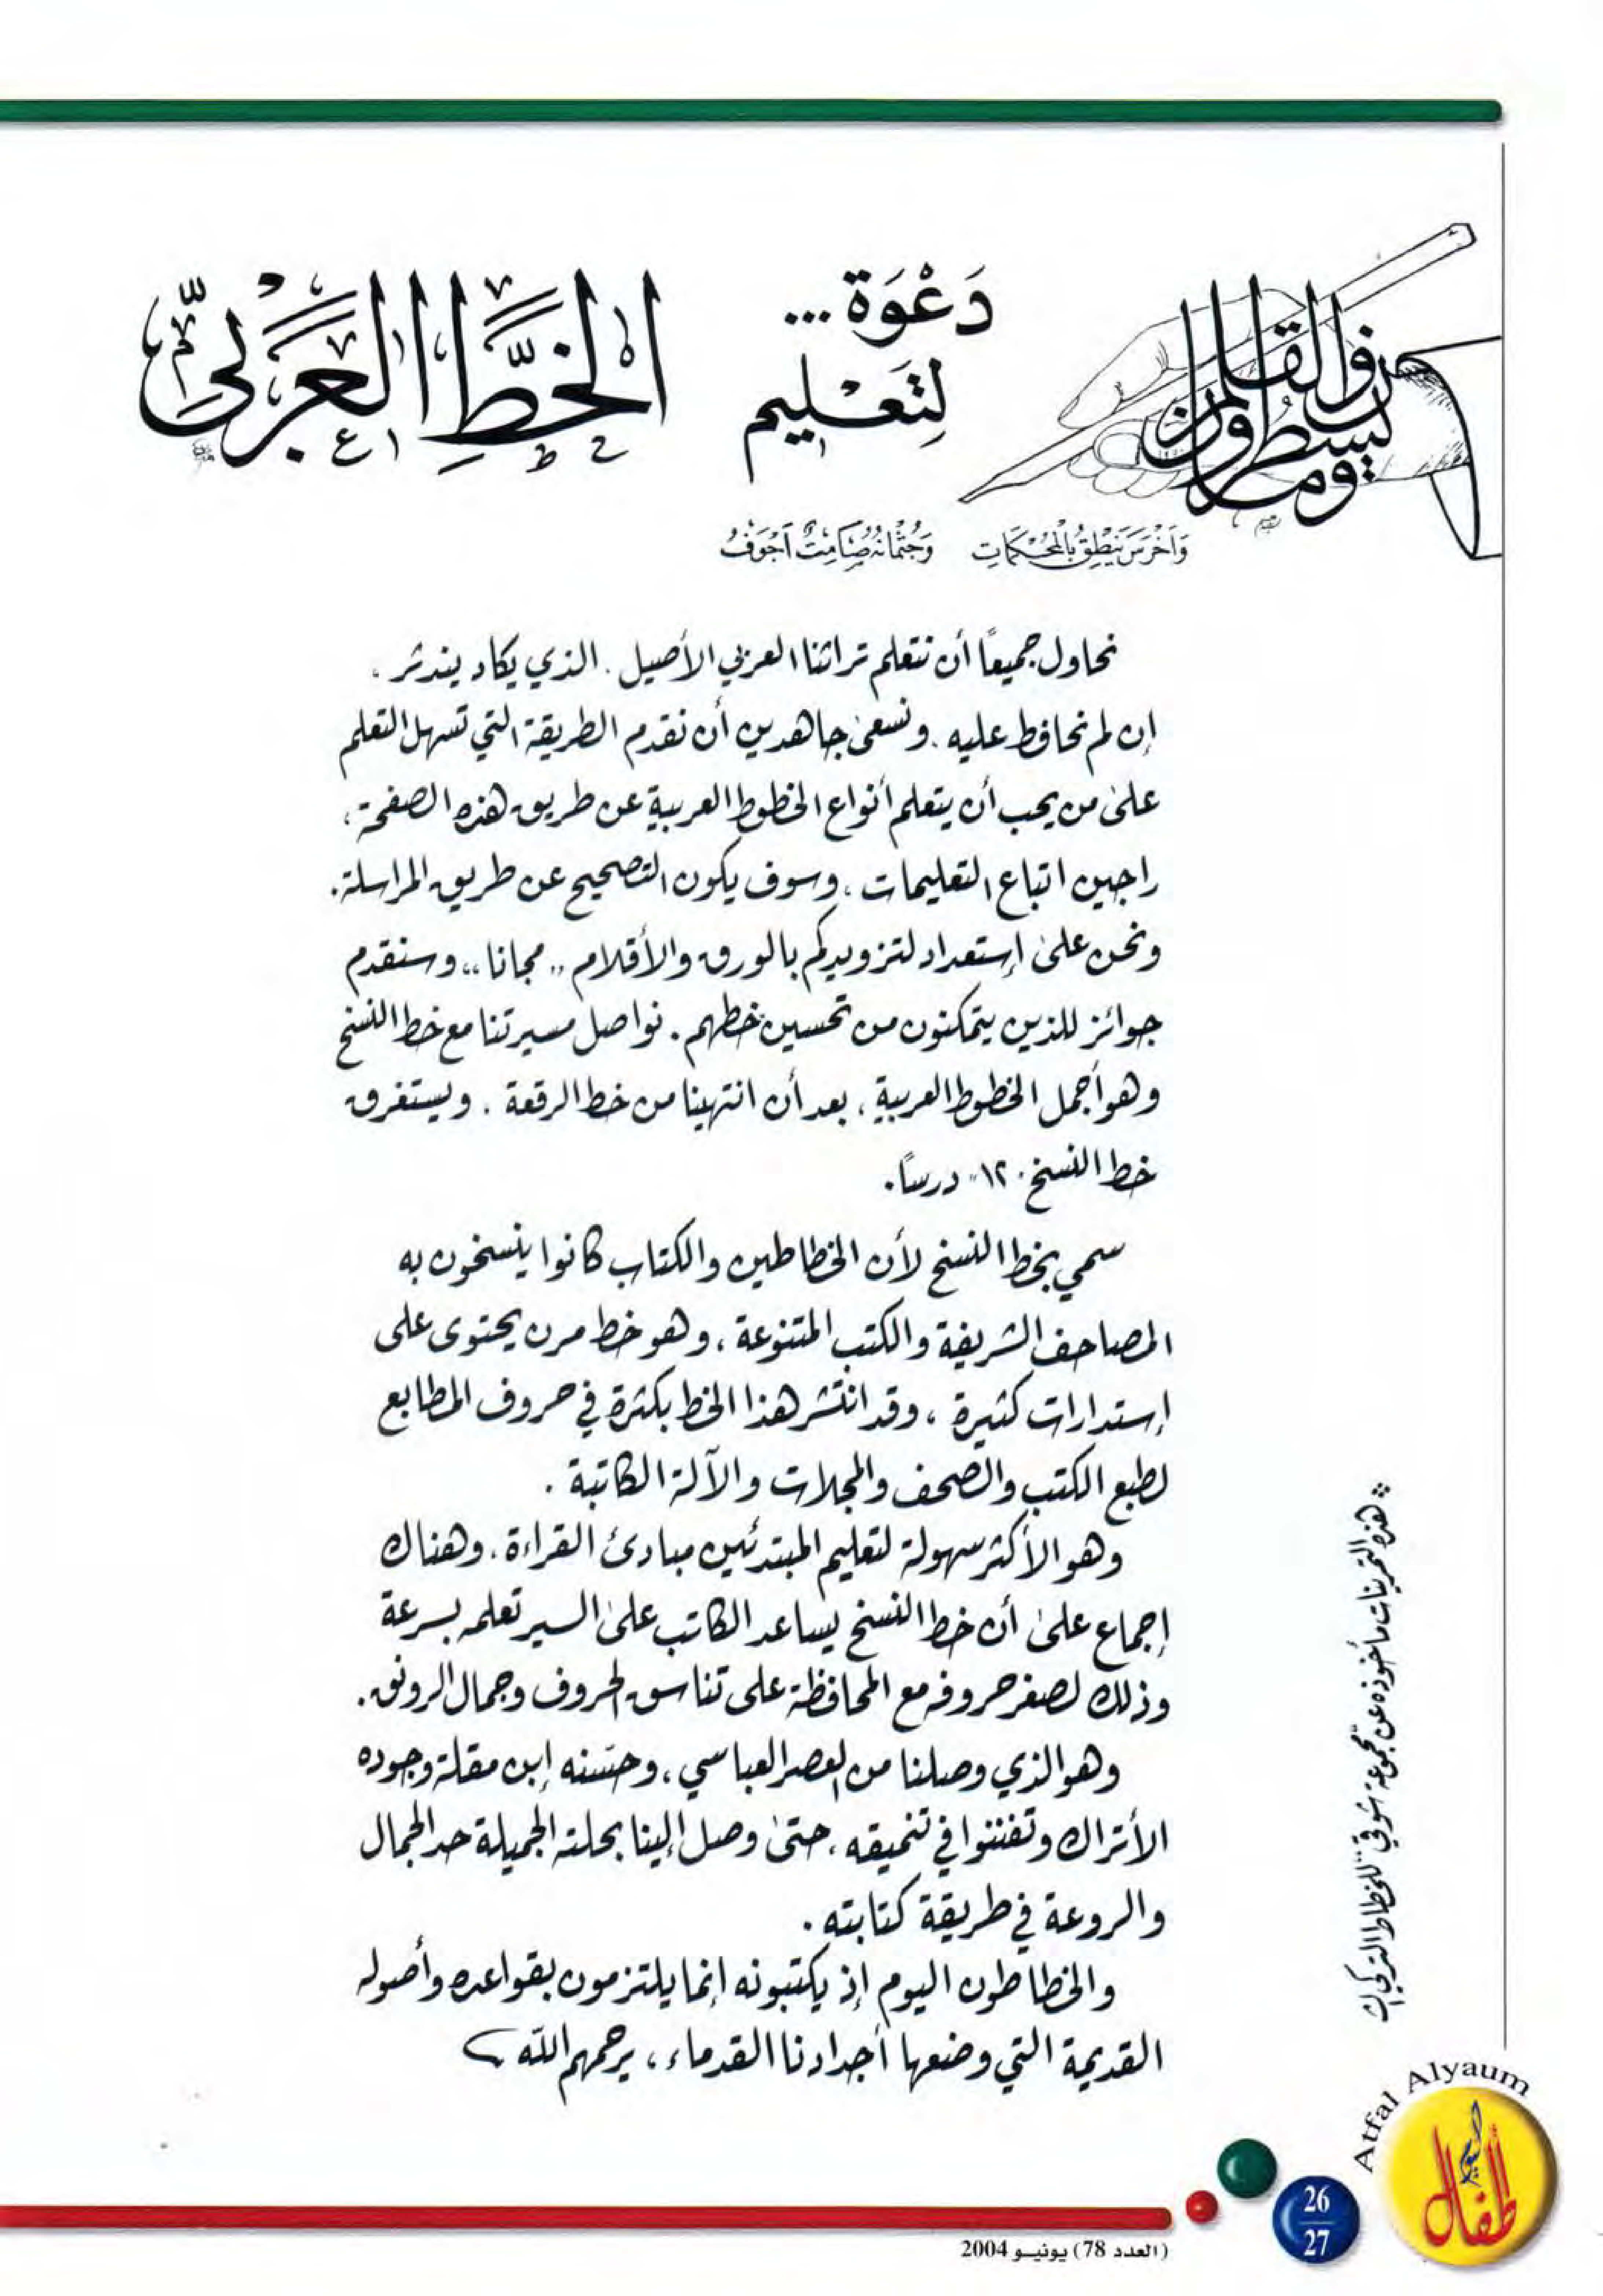 ن والقلم وما يسطرون
دَعْوَة...
لِتَعْلِيم
الخَطِّ العَرَبِيِّ
وَأَخْرَسَ يَنْطِقُ بِالْمُحْكَمَاتِ وَجُثْمَانُهُ صَامِتٌ أَجْوَفُ
نحاول جميعًا أن نتعلم تراثنا العربي الأصيل. الذي يكاد يندثر،
إن لم نحافظ عليه. ونسعى جاهدين أن نقدم الطريقة التي تسهل التعلم
على من يحب أن يتعلم أنواع الخطوط العربية عن طريق هذه الصفحة،
راجين اتباع التعليمات، وسوف يكون التصحيح عن طريق المراسلة.
ونحن على إستعداد لتزويدكم بالورق والأقلام "مجانا"، وسنقدم
جوائز للذين يتمكنون من تحسين خطهم. نواصل مسيرتنا مع خط النسخ
وهو أجمل الخطوط العربية، بعد أن انتهينا من خط الرقعة. ويستغرق
خط النسخ "١٢" درسًا.
سمي بخط النسخ لأن الخطاطين والكتاب كانوا ينسخون به
المصاحف الشريفة والكتب المتنوعة، وهو خط مرن يحتوى على
إستدارات كثيرة، وقد انتشر هذا الخط بكثرة في حروف المطابع
لطبع الكتب والصحف والمجلات والآلة الكاتبة.
وهو الأكثر سهولة لتعليم المبتدئين مبادئ القراءة. وهناك
إجماع على أن خط النسخ يساعد الكاتب على السير تعلمه بسرعة
وذلك لصغر حروفه مع المحافظة على تناسق الحروف وجمال الرونق.
وهو الذي وصلنا من العصر العباسي، وحسّنه إبن مقلة وجوده
الأتراك وتفننوا في تنميقه، حتى وصل إلينا بحلته الجميلة حد الجمال
والروعة في طريقة كتابته.
والخطاطون اليوم إذ يكتبونه إنما يلتزمون بقواعده وأصوله
القديمة التي وضعها أجدادنا القدماء، يرحمهم الله
هذه التمرينات مأخوذه عن مجموعة شوقي "للخطاط التركي"
Atfal Alyaum
أطفال اليوم
26
27
(العدد 78) يونيـو 2004